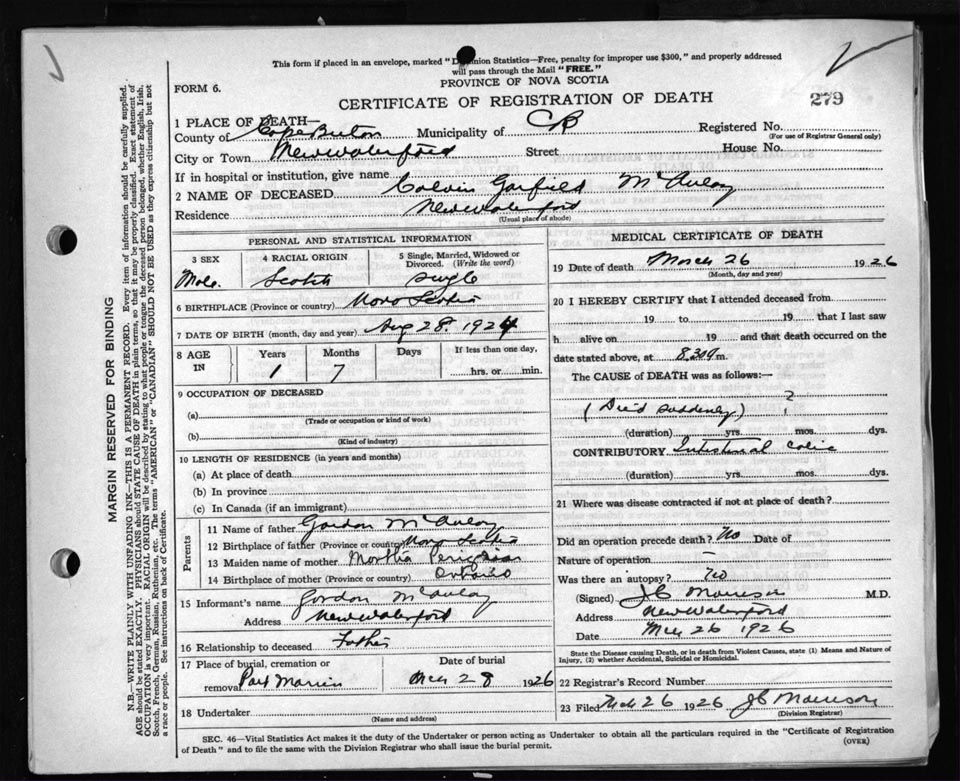 This form if placed in an envelope, marked "Dominion Statistics—Free, penalty for improper use $300," and properly addressed
will pass through the Mail "FREE."
PROVINCE OF NOVA SCOTIA
FORM 6.
CERTIFICATE OF REGISTRATION OF DEATH
279
1 PLACE OF DEATH—
County of Cape Breton Municipality of CB Registered No.
(For use of Registrar General only)
City or Town New Waterford Street House No.
If in hospital or institution, give name
2 NAME OF DECEASED Calvin Garfield McAulay
Residence New Waterford
(Usual place of abode)
PERSONAL AND STATISTICAL INFORMATION
3 SEX 4 RACIAL ORIGIN 5 Single, Married, Widowed or Divorced. (Write the word)
Male Scotch Single
6 BIRTHPLACE (Province or country) Nova Scotia
7 DATE OF BIRTH (month, day and year) Aug 28 1924
8 AGE IN Years Months Days If less than one day,
1 7 hrs. or min.
9 OCCUPATION OF DECEASED
(a)
(Trade or occupation or kind of work)
(b)
(Kind of industry)
10 LENGTH OF RESIDENCE (in years and months)
(a) At place of death
(b) In province
(c) In Canada (if an immigrant)
Parents
11 Name of father Gordon McAulay
12 Birthplace of father (Province or country) Nova Scotia
13 Maiden name of mother Martha
14 Birthplace of mother (Province or country) Ontario
15 Informant's name Gordon McAulay
Address New Waterford
16 Relationship to deceased Father
17 Place of burial, cremation or Date of burial
removal Port Morien Mch 28 1926
18 Undertaker
(Name and address)
MEDICAL CERTIFICATE OF DEATH
19 Date of death March 26 1926
(Month, day and year)
20 I HEREBY CERTIFY that I attended deceased from
19 to 19 that I last saw
h alive on 19 and that death occurred on the
date stated above, at 8.30 m.
The CAUSE of DEATH was as follows:—
?
(Died suddenly)
(duration) yrs. mos. dys.
CONTRIBUTORY Intestinal Colic
(duration) yrs. mos. dys.
21 Where was disease contracted if not at place of death?
Did an operation precede death? No Date of
Nature of operation —
Was there an autopsy? No
(Signed) JC Morrison M.D.
Address New Waterford
Date Mch 26 1926
State the Disease causing Death, or in death from Violent Causes, state (1) Means and Nature of
Injury, (2) whether Accidental, Suicidal or Homicidal.
22 Registrar's Record Number
23 Filed Mch 26 1926 JC Morrison
(Division Registrar)
SEC. 46—Vital Statistics Act makes it the duty of the Undertaker or person acting as Undertaker to obtain all the particulars required in the "Certificate of Registration
of Death" and to file the same with the Division Registrar who shall issue the burial permit.
(OVER)
MARGIN RESERVED FOR BINDING
N.B.—WRITE PLAINLY WITH UNFADING INK—THIS IS A PERMANENT RECORD. Every item of information should be carefully supplied.
AGE should be stated EXACTLY. PHYSICIANS should STATE CAUSE OF DEATH in plain terms, so that it may be properly classified. Exact statement of
OCCUPATION is very important. RACIAL ORIGIN will be described by stating to what people or tongue the deceased person belonged, whether English, Irish,
Scotch, French, German, Russian, Ruthenian, etc. The terms "AMERICAN" or "CANADIAN" SHOULD NOT BE USED as they express citizenship but not
a race or people. See instructions on back of Certificate.